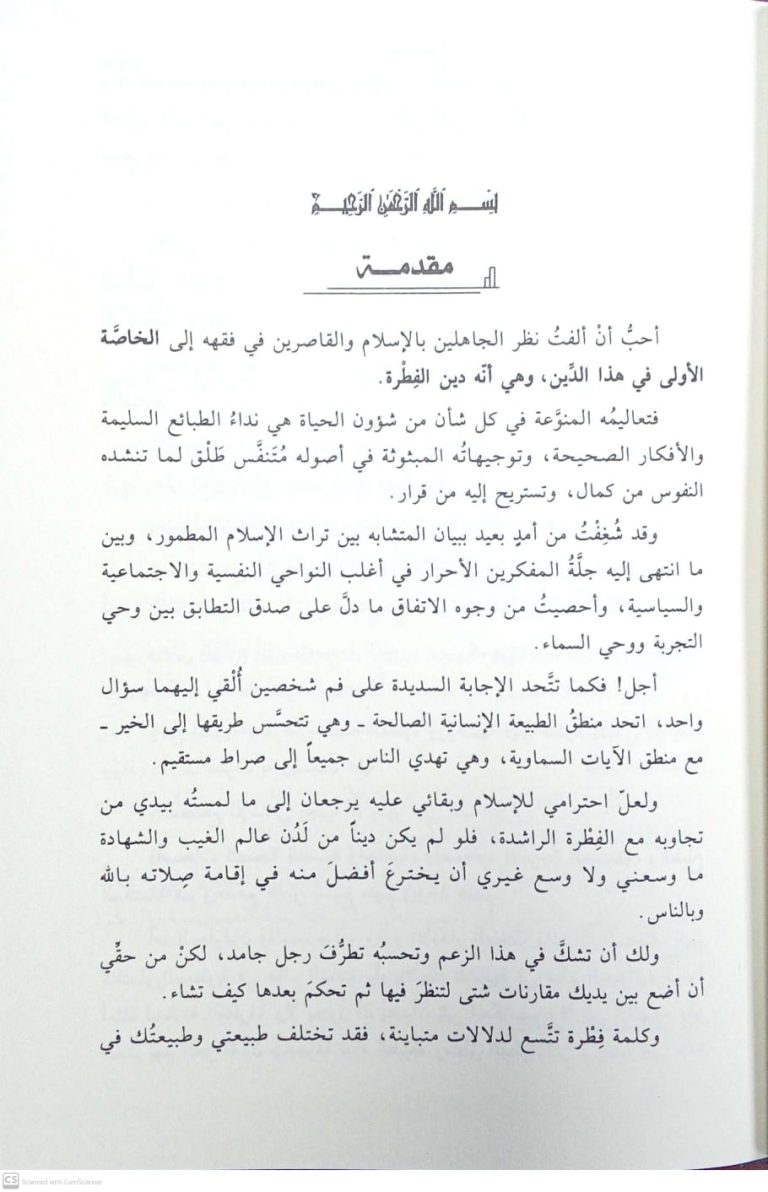 بسم الله الرحمن الرحيم
مقدمة
أحبُّ أنْ ألفتُ نظر الجاهلين بالإسلام والقاصرين في فقهه إلى الخاصَّة
الأولى في هذا الدِّين، وهي أنّه دين الفِطْرة.
فتعاليمُه المنوَّعة في كل شأن من شؤون الحياة هي نداءُ الطبائع السليمة
والأفكار الصحيحة، وتوجيهاتُه المبثوثة في أصوله مُتَنفَّس طَلْق لما تنشده
النفوس من كمال، وتستريح إليه من قرار.
وقد شُغِفْتُ من أمدٍ بعيد ببيان المتشابه بين تراث الإسلام المطمور، وبين
ما انتهى إليه جلَّةُ المفكرين الأحرار في أغلب النواحي النفسية والاجتماعية
والسياسية، وأحصيتُ من وجوه الاتفاق ما دلَّ على صدق التطابق بين وحي
التجربة ووحي السماء.
أجل! فكما تتَّحد الإجابة السديدة على فم شخصين أُلْقي إليهما سؤال
واحد، اتحد منطقُ الطبيعة الإنسانية الصالحة ـ وهي تتحسَّس طريقها إلى الخير ـ
مع منطق الآيات السماوية، وهي تهدي الناس جميعاً إلى صراط مستقيم.
ولعلّ احترامي للإسلام وبقائي عليه يرجعان إلى ما لمستُه بيدي من
تجاوبه مع الفِطْرة الراشدة، فلو لم يكن ديناً من لَدُن عالم الغيب والشهادة
ما وسعني ولا وسع غيري أن يخترعَ أفضلَ منه في إقامة صِلاته بالله
وبالناس.
ولك أن تشكَّ في هذا الزعم وتحسبُه تطرُّفَ رجل جامد، لكنْ من حقِّي
أن أضع بين يديك مقارنات شتى لتنظرَ فيها ثم تحكمَ بعدها كيف تشاء.
وكلمة فِطْرة تتَّسع لدلالات متباينة، فقد تختلف طبيعتي وطبيعتُك في
CS Scanned with CamScanner